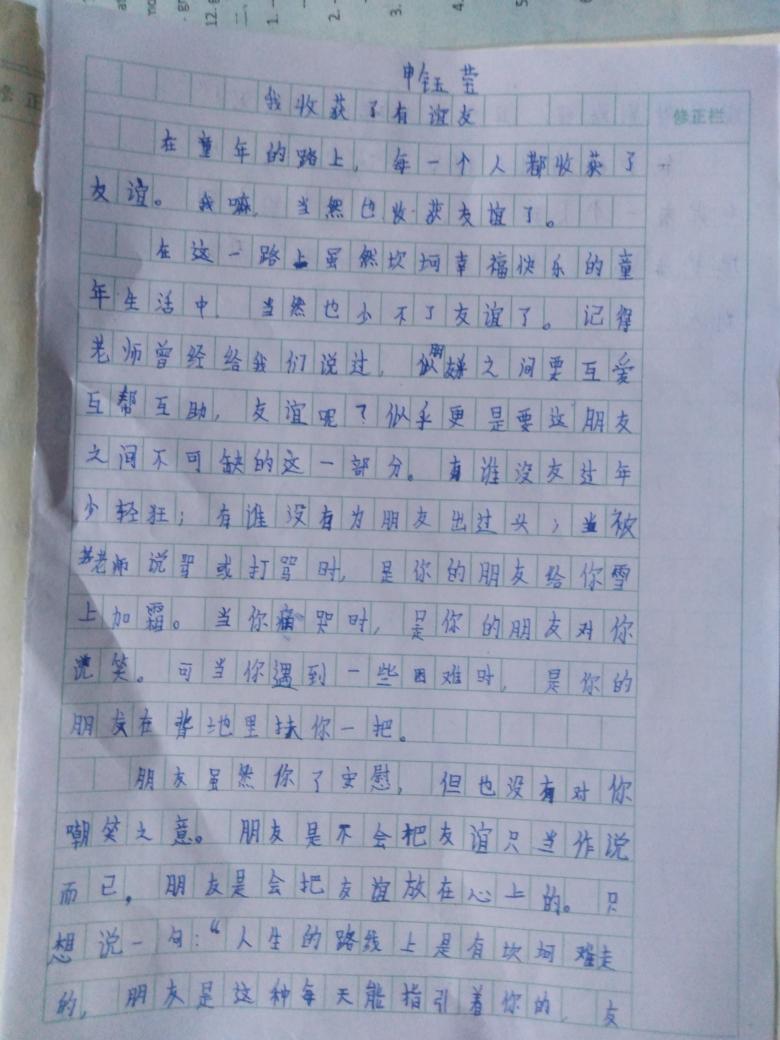 申钰莹
我收获了有谊友
修正栏
在童年的路上，每一个人都收获了
友谊。我嘛，当然也收获友谊了。
在这一路上虽然坎坷幸福快乐的童
年生活中，当然也少不了友谊了。记得
老师曾经给我们说过，朋友之间要互爱
互帮互助，友谊呢？似乎更是要这朋友
之间不可缺的这一部分。有谁没友过年
少轻狂；有谁没有为朋友出过头；当被
老师说骂或打骂时，是你的朋友给你雪
上加霜。当你痛哭时，是你的朋友对你
说笑。可当你遇到一些困难时，是你的
朋友在背地里扶你一把。
朋友虽然你了安慰，但也没有对你
嘲笑之意。朋友是不会把友谊只当作说
而已，朋友是会把友谊放在心上的。只
想说一句：“人生的路线上是有坎坷难走
的，朋友是这种每天能指引着你的，友